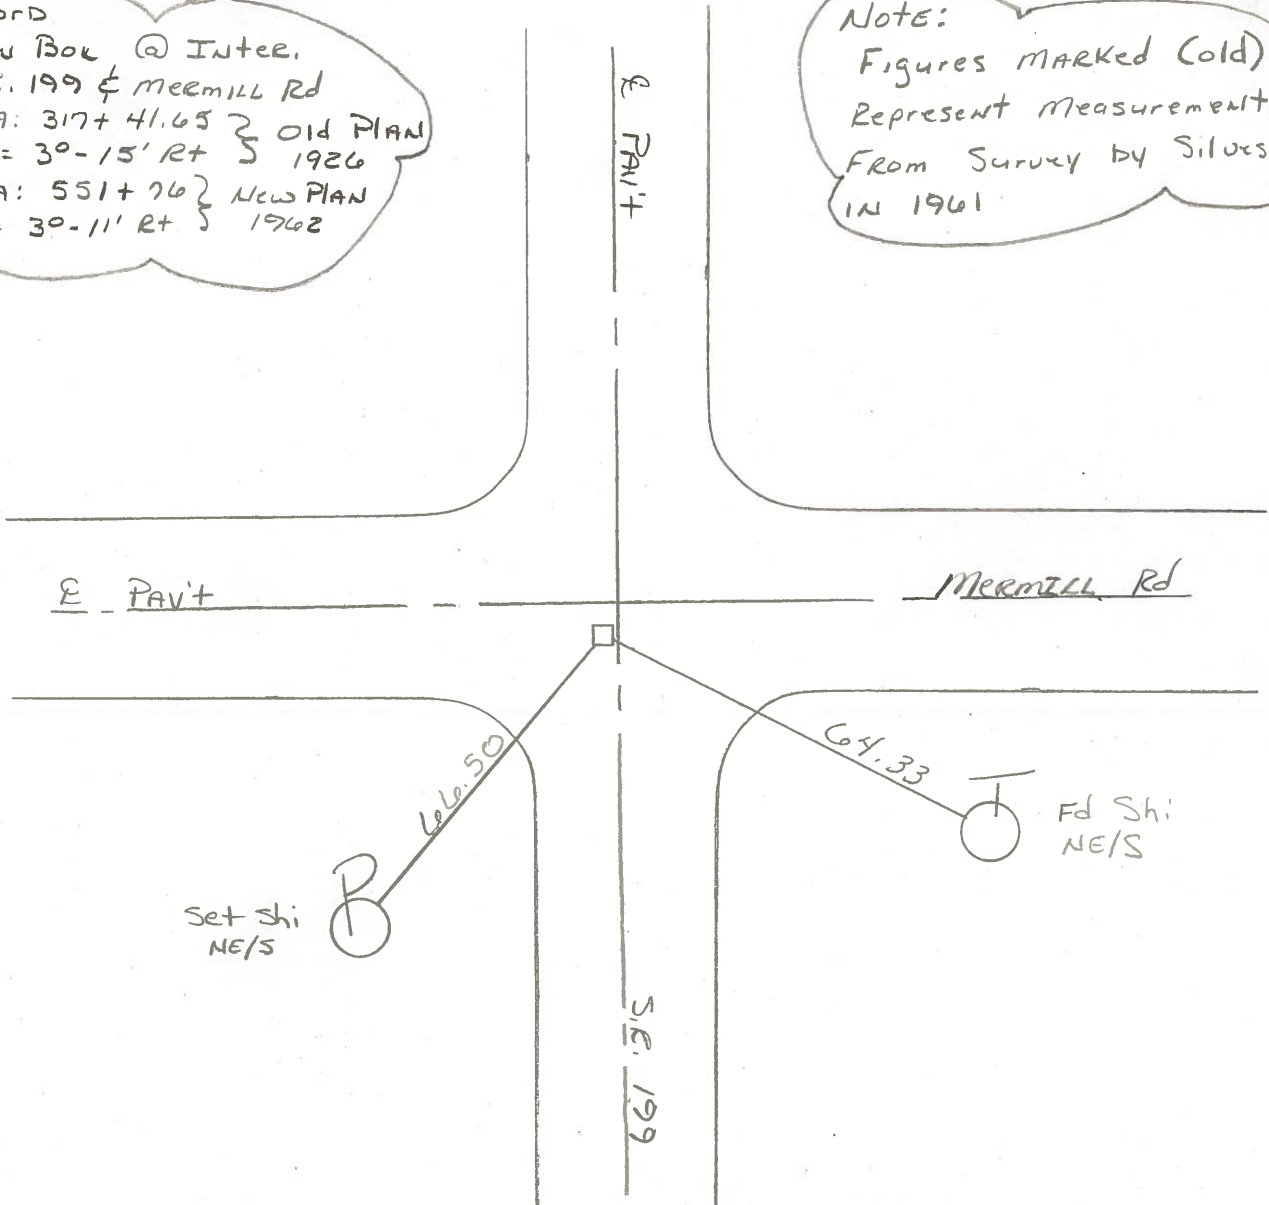 Box @ Inter.
199 ¢ Mermill Rd
317+ 41.65 } Old Plan
= 3°-15' Rt } 1926
551+76 } New Plan
3°-11' Rt } 1962
Note:
Figures marked (old)
Represent measurement
From Survey by
in 1961
℄ Pav't
℄ Pav't
Mermill Rd
66.50
64.33
Fd Shi
NE/S
Set Shi
NE/S
S.R. 199